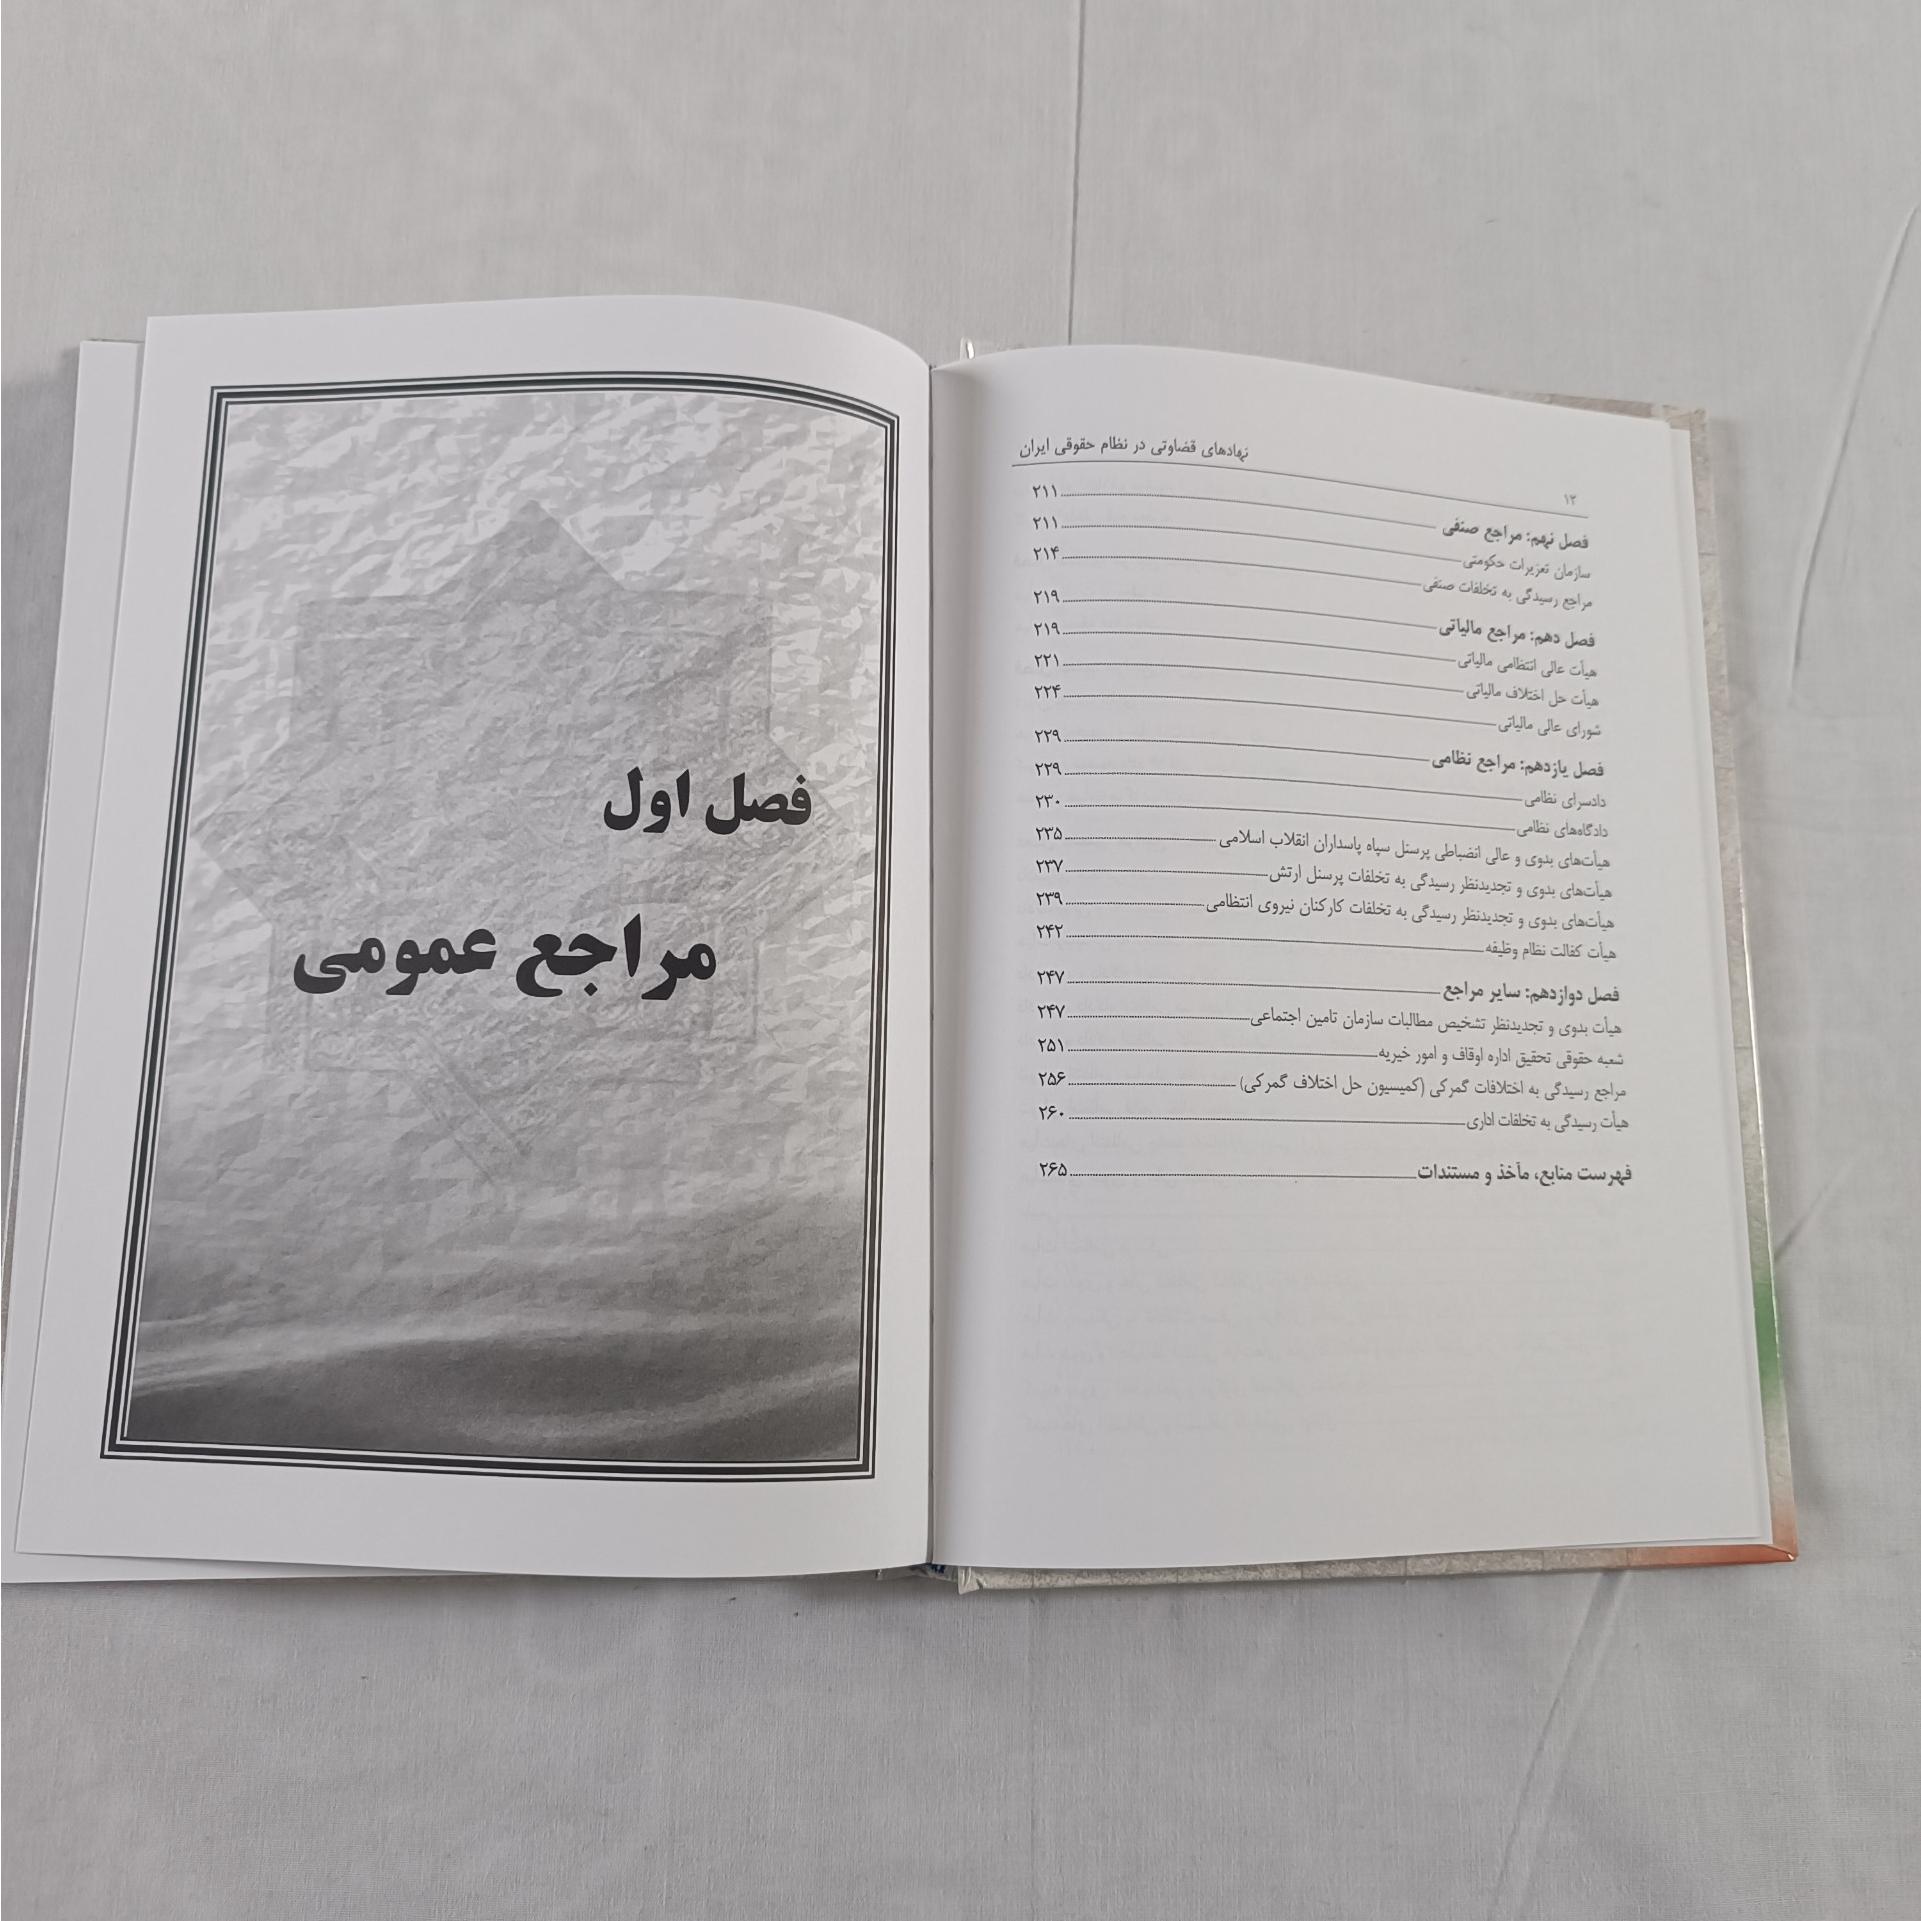 نهادهای قضاوتی در نظام حقوقی ایران
۱۲
فصل نهم: مراجع صنفی ۲۱۱
سازمان تعزیرات حکومتی ۲۱۱
مراجع رسیدگی به تخلفات صنفی ۲۱۴
فصل دهم: مراجع مالیاتی ۲۱۹
هیأت عالی انتظامی مالیاتی ۲۱۹
هیأت حل اختلاف مالیاتی ۲۲۱
شورای عالی مالیاتی ۲۲۴
فصل یازدهم: مراجع نظامی ۲۲۹
دادسرای نظامی ۲۲۹
دادگاه‌های نظامی ۲۳۰
هیأت‌های بدوی و عالی انضباطی پرسنل سپاه پاسداران انقلاب اسلامی ۲۳۵
هیأت‌های بدوی و تجدیدنظر رسیدگی به تخلفات پرسنل ارتش ۲۳۷
هیأت‌های بدوی و تجدیدنظر رسیدگی به تخلفات کارکنان نیروی انتظامی ۲۳۹
هیأت کفالت نظام وظیفه ۲۴۲
فصل دوازدهم: سایر مراجع ۲۴۷
هیأت بدوی و تجدیدنظر تشخیص مطالبات سازمان تامین اجتماعی ۲۴۷
شعبه حقوقی تحقیق اداره اوقاف و امور خیریه ۲۵۱
مراجع رسیدگی به اختلافات گمرکی (کمیسیون حل اختلاف گمرکی) ۲۵۶
هیأت رسیدگی به تخلفات اداری ۲۶۰
فهرست منابع، مآخذ و مستندات ۲۶۵
فصل اول
مراجع عمومی